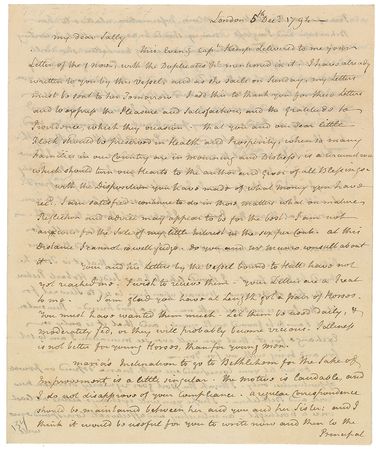 London 5th Decr 1794 —
My dear Sally
This Eveng Capt. Kemp delivered to me your
Letter of the 1 novr, with the Duplicates &c mentioned in it. I have already
written to you by this Vessel, and as she sails on Sunday, my Letters
must be sent to her Tomorrow. I add this to thank you for these Letters
and to express the Pleasure and Satisfaction, and the Gratitude to
Providence, which they occasion — that you and our dear little
Flock should be preserved in Health and Prosperity, when so many
Families in our Country are in Mourning and Distress, is a circumstance
which should turn our Hearts to the author and Giver of all Blessings —
with the Disposition you have made of what money you have
recd. I am satisfied — continue to do in those matters what on mature
Reflection and advice may appear to be for the best. I am not
anxious for the Sale of my little Interest in the six per Cents. at this
Distance I cannot so well judge. do you and Mr Munro consult about
it.
Your and his Letters by the Vessel bound to Hull have not
yet reached me. I wish to recieve them — your Letters are a Treat
to me. I am glad you have at length got a pair of Horses.
You must have wanted them much. Let them be used daily, &
moderately fed, or they will probably become vicious. Idleness
is not better for young Horses, than for young Men.
Maria's Inclination to go to Bethlehem for the Sake of
Improvement is a little singular. The motive is laudable, and
I do not disapprove of your compliance. a regular correspondence
should be maintained between her and you and her Sister; and I
think it would be useful for you to write now and then to the
Principal